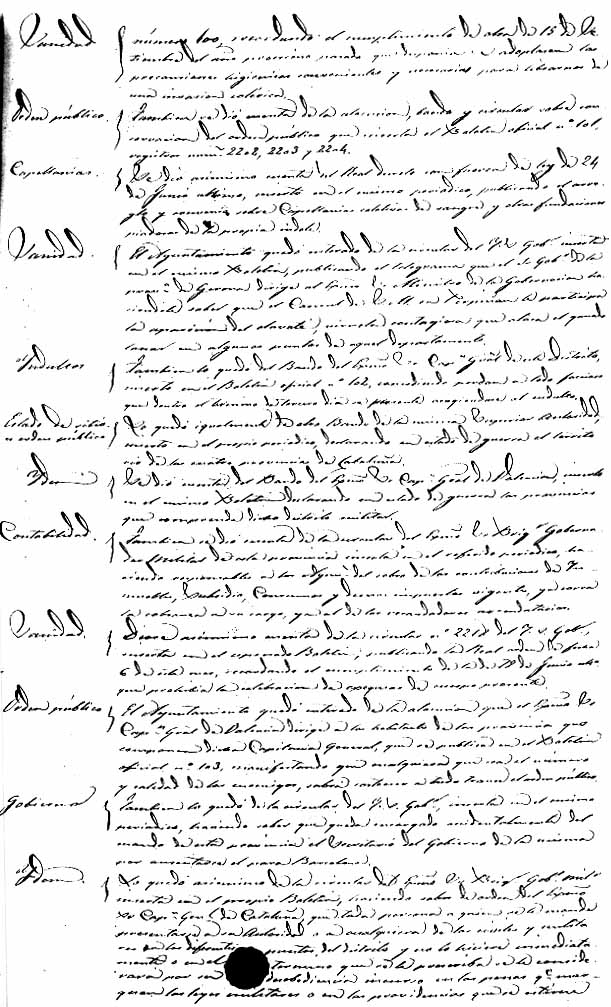 Sanidad { número 100, recordando el cumplimiento de otra de 15 de Se-
tiembre del año próximo pasado que disponia se adoptaran las
precauciones higienicas convenientes y necesarias para librarnos de
una invasion colérica.
Orden público. { Tambien se dió cuenta de la alocucion, bando y circular sobre con-
servacion del orden público que inserta el Boletin oficial nº 101,
registros numº 2202, 2203 y 2204.
Capellanías. { Se dió asimismo cuenta del Real decreto con fuerza de ley de 24
de Junio último, inserto en el mismo periodico, publicando el arre-
glo y convenio sobre Capellanias colativas de sangre y otras fundaciones
piadosas de la propia indole.
Sanidad. { El Ayuntamiento quedó enterado de la circular del M. I. S. Gobr. inserta
en el mismo Boletin, publicando el telegrama que el de Gobr. de la
provª de Gerona dirige al Exmo Sr. Ministro de la Gobernacion ha-
ciendole saber que el Consul de S. M. en Perpiñan le participa
la aparicion del , viruela contagiosa que ataca el ganado
lanar en algunos puntos de aquel departamento.
Indultos { Tambien lo quedó del Bando del Exmo Sr. Capn Gral de este distrito,
inserto en el Boletin oficial nº 102, concediendo perdon a todo faccioso
que dentro el término de tercero dia se presente acogiendose al indulto.
Estado de sitio
u orden público { Lo quedó igualmente de otro Bando de la misma Superior Autoridad,
inserto en el propio periodico, declarando en estado de guerra el territo-
rio de las cuatro provincias de Cataluña.
Idem { Se dió cuenta del Bando del Exmo Sr. Capn Gral de Valencia, inserto
en el mismo Boletin declarando en estado de guerra las provincias
que comprende dicho distrito militar.
Contabilidad. { Tambien se dió cuenta de la circular del Exmo Sr. Brigr Goberna-
dor Militar de esta provincia inserta en el referido periodico, ha-
ciendo responsable a los Ayuntº del cobro de las contribuciones de In-
muebles, Subsidio, Consumos y demas impuestos vigentes, ya corra
la cobranza a su cargo, ya al de los recaudadores
Sanidad. { Diose asimismo cuenta de la circular nº 2218 del M. I. S. Gobr.,
inserta en el espresado Boletin, publicando la Real orden de fecha
6 de este mes, recordando el cumplimiento de la de de Junio
que prohibia la celebracion de exequias de cuerpo presente.
Orden público { El Ayuntamiento quedó enterado de la alocucion que el Exmo Sr.
Capn Gral de Valencia dirige a los habitantes de las provincias que
componen dicha Capitania General, que se publica en el Boletin
oficial nº 103, manifestando que cualquiera que sea el número
y calidad de los enemigos, sabrá contener a todo trance el orden público.
Gobierno { Tambien lo quedó de la circular del M. I. S. Gobr., inserta en el mismo
periodico, haciendo saber que queda encargado accidentalmente del
mando de esta provincia el Secretario del Gobierno de la misma
por ausentarse él para Barcelona.
Idem { Lo quedó asimismo de la circular del Exmo Sr. Brigr Gobr. Milr
inserta en el propio Boletin, haciendo saber de orden del Exmo
Sr. Capn Gral de Cataluña, que toda persona a quien se le mande
presentarse a su Autoridad o a cualquiera de las civiles y milita-
res en los diferentes puntos del distrito y no lo hiciere inmediata-
mente o en el termino que se le prescriba se le conside-
rará por su desobediencia incurso en las penas qe mar-
quen las leyes militares o en las providencias que se estimare